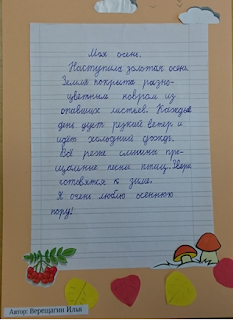 Моя осень.
Наступила золотая осень.
Земля покрыта разно-
цветным ковром из
опавших листьев. Каждый
день дует резкий ветер и
идёт холодный дождь.
Всё реже слышны про-
щальные песни птиц. Звери
готовятся к зиме.
Я очень люблю осеннюю
пору!
Автор: Верещагин Илья